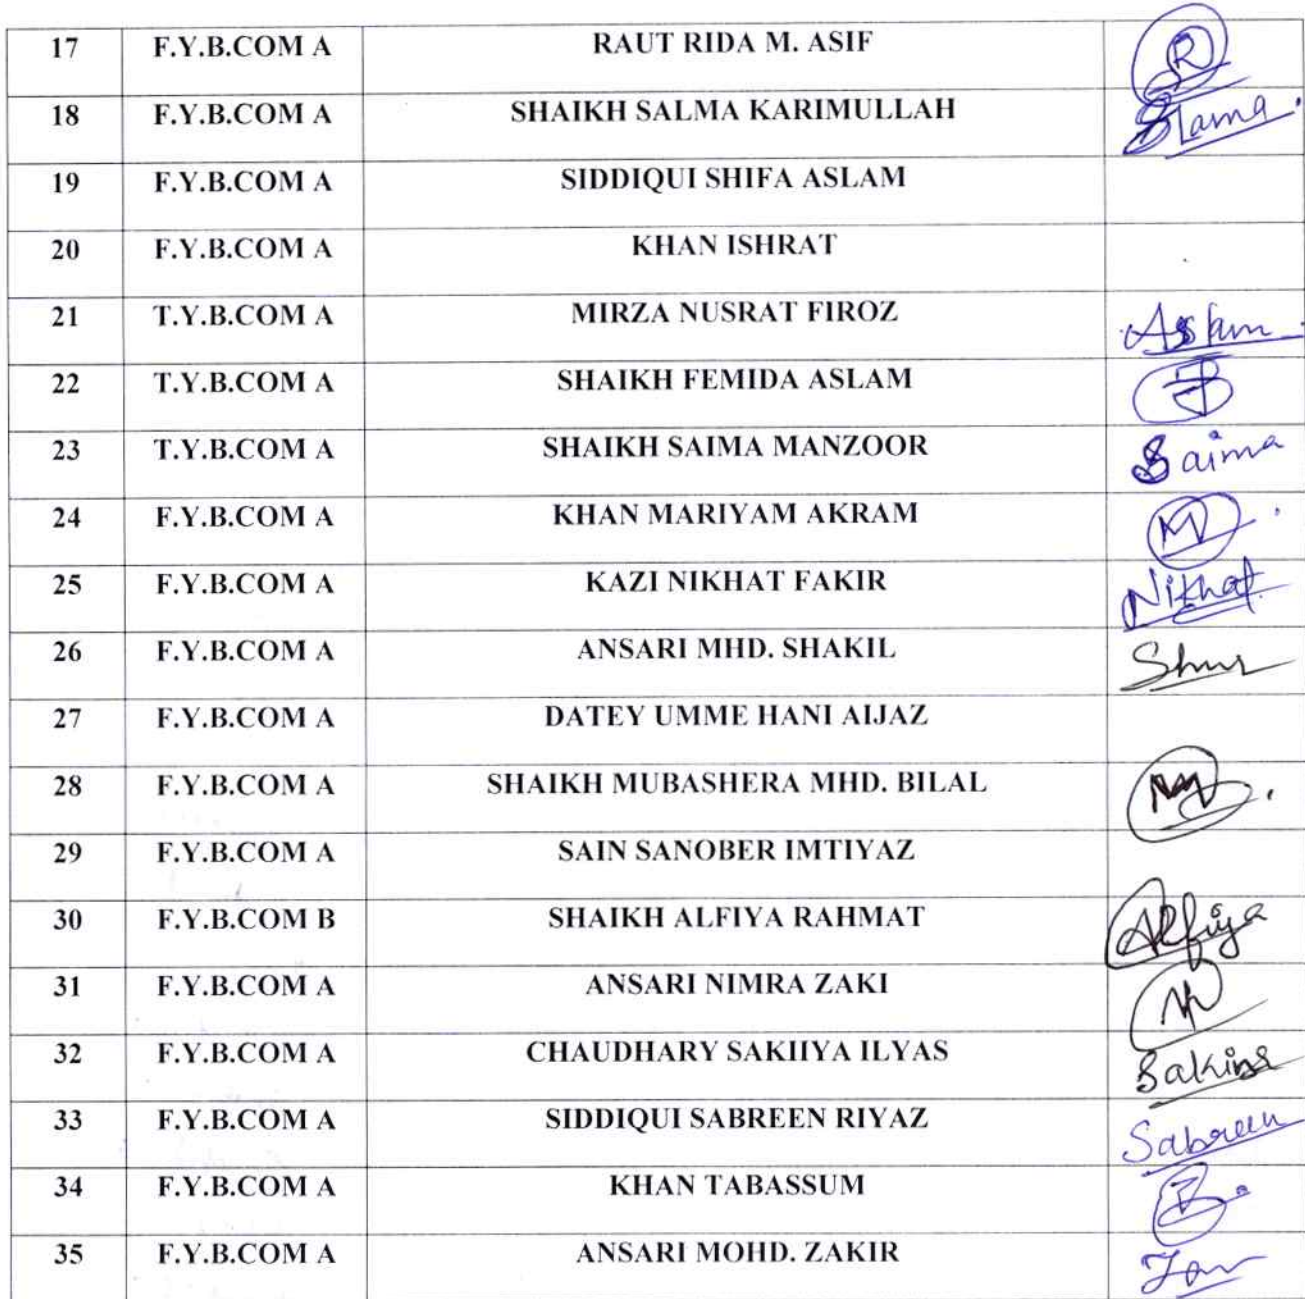 17 F.Y.B.COM A RAUT RIDA M. ASIF R
18 F.Y.B.COM A SHAIKH SALMA KARIMULLAH
19 F.Y.B.COM A SIDDIQUI SHIFA ASLAM
20 F.Y.B.COM A KHAN ISHRAT
21 T.Y.B.COM A MIRZA NUSRAT FIROZ Aslam
22 T.Y.B.COM A SHAIKH FEMIDA ASLAM
23 T.Y.B.COM A SHAIKH SAIMA MANZOOR Saima
24 F.Y.B.COM A KHAN MARIYAM AKRAM M
25 F.Y.B.COM A KAZI NIKHAT FAKIR Nikhat
26 F.Y.B.COM A ANSARI MHD. SHAKIL
27 F.Y.B.COM A DATEY UMME HANI AIJAZ
28 F.Y.B.COM A SHAIKH MUBASHERA MHD. BILAL
29 F.Y.B.COM A SAIN SANOBER IMTIYAZ
30 F.Y.B.COM B SHAIKH ALFIYA RAHMAT Alfiya
31 F.Y.B.COM A ANSARI NIMRA ZAKI
32 F.Y.B.COM A CHAUDHARY SAKIIYA ILYAS Sakina
33 F.Y.B.COM A SIDDIQUI SABREEN RIYAZ Sabreen
34 F.Y.B.COM A KHAN TABASSUM
35 F.Y.B.COM A ANSARI MOHD. ZAKIR